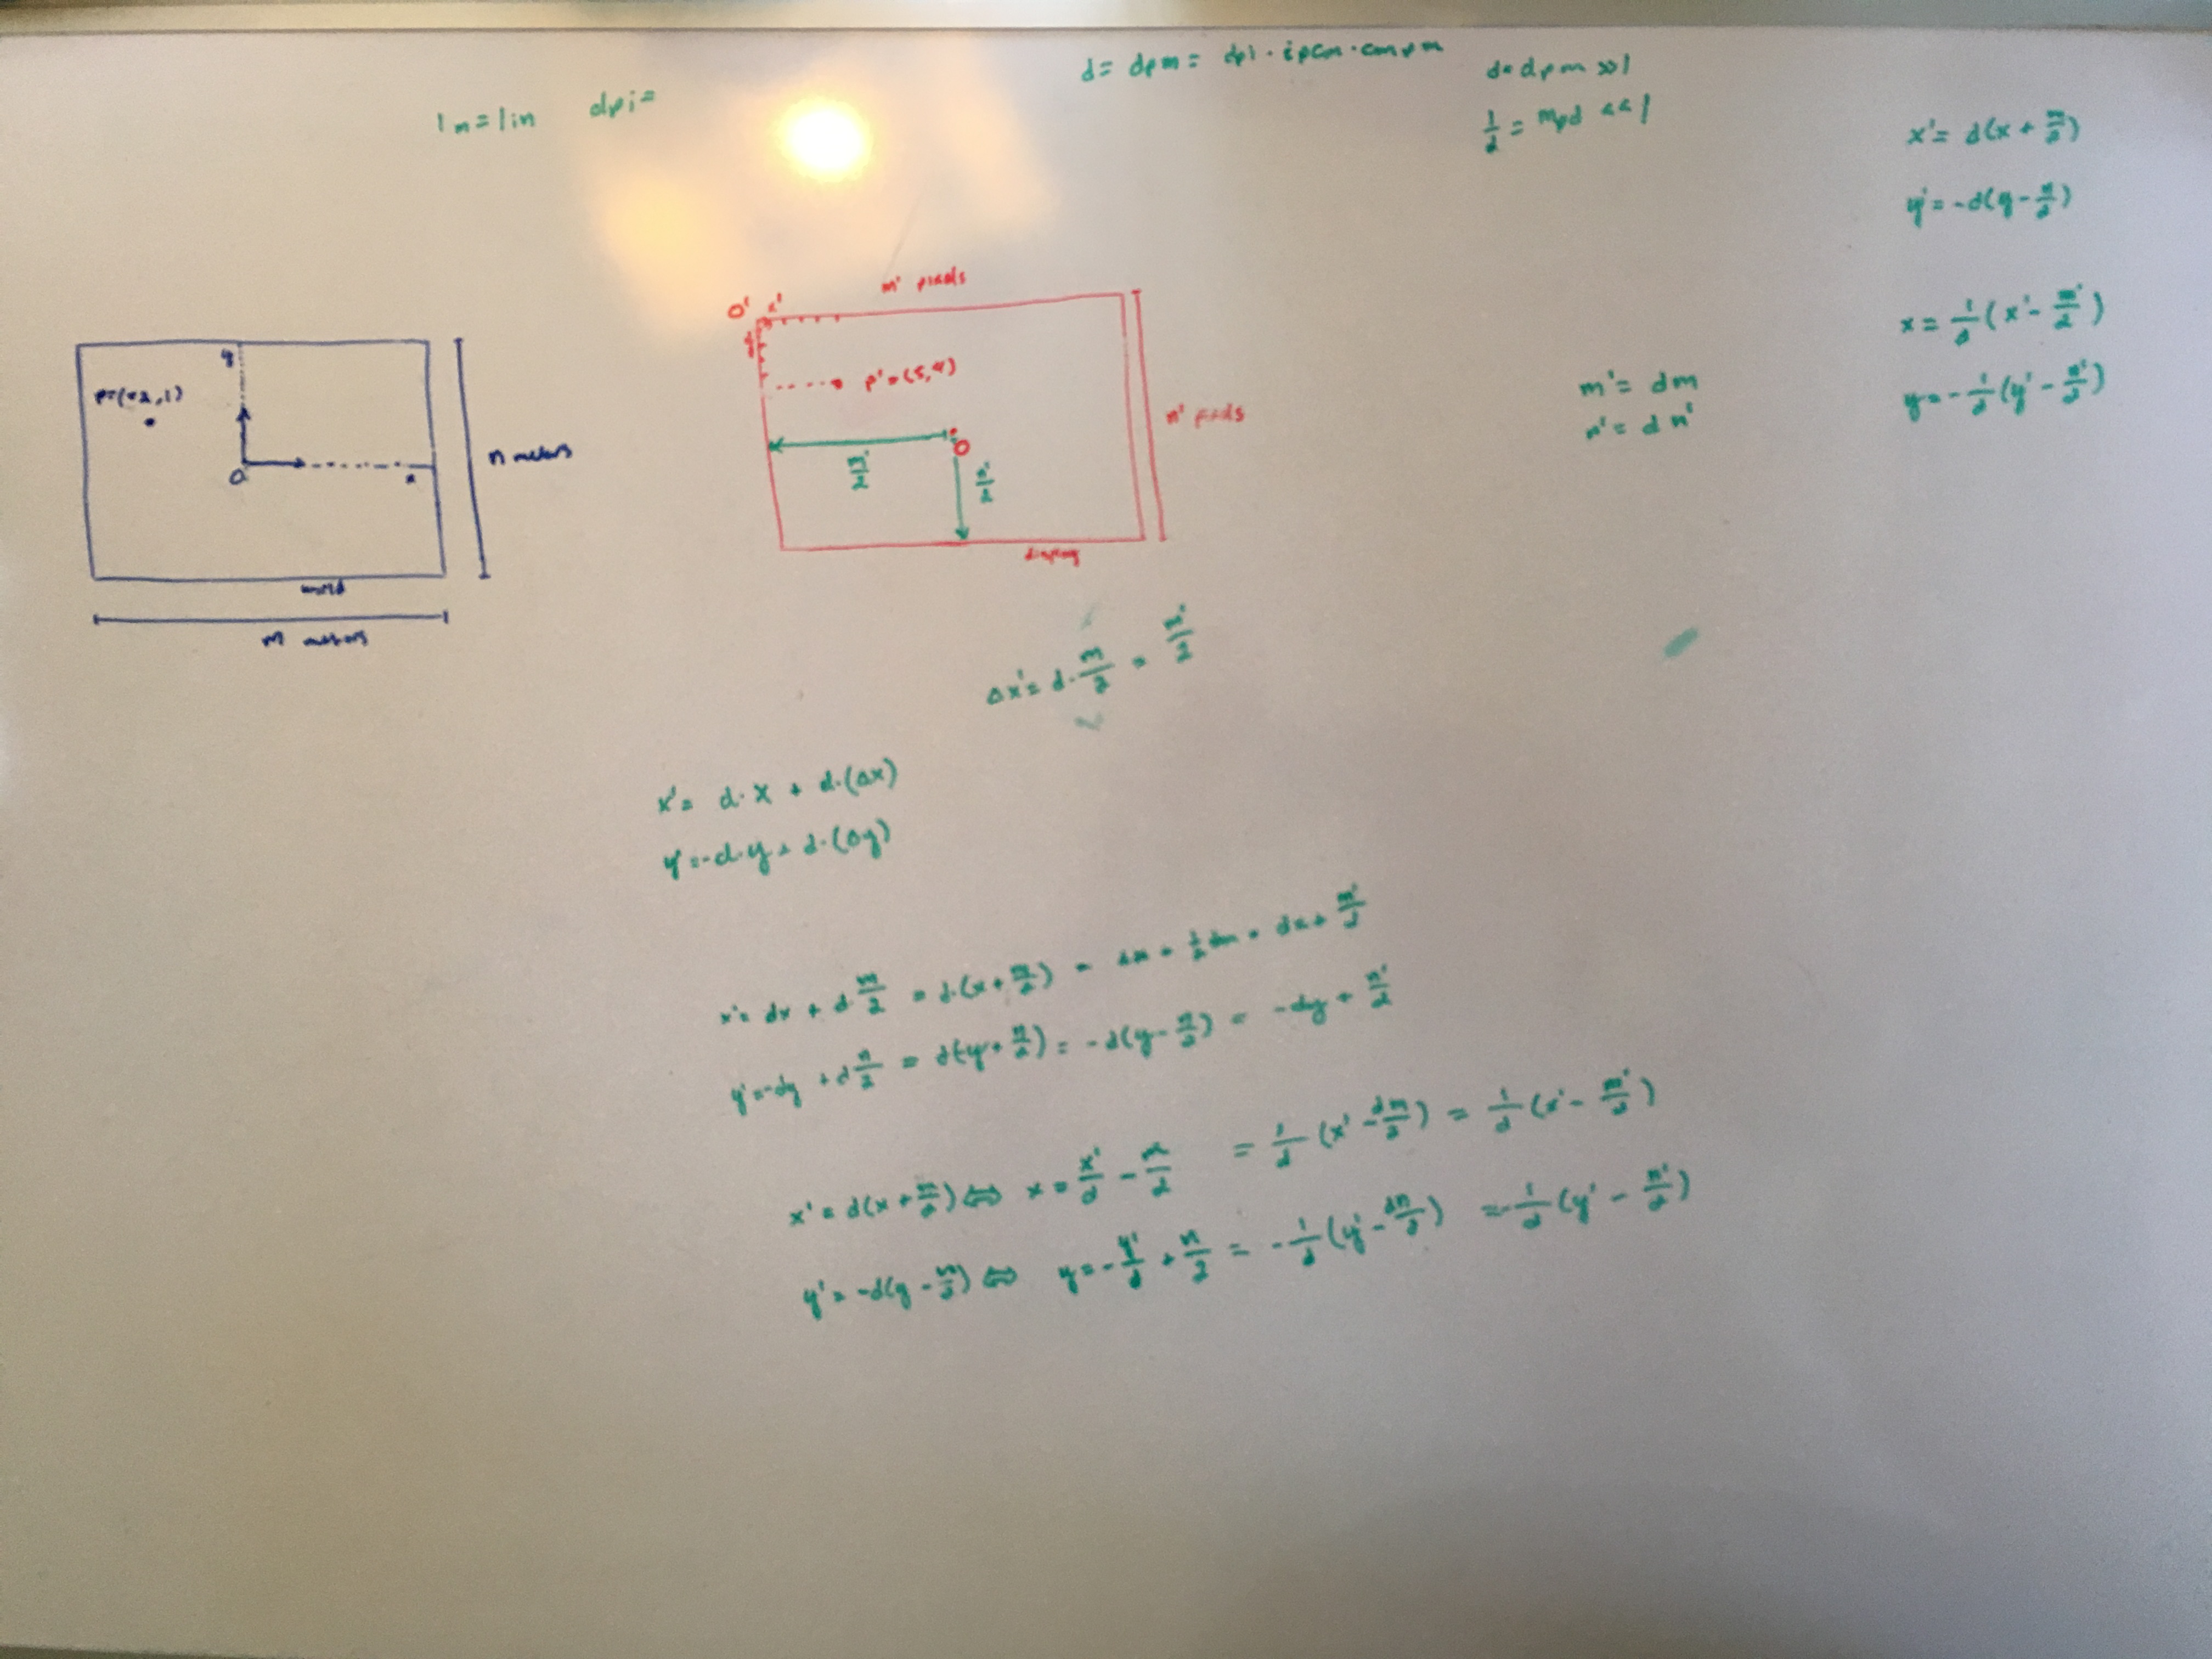 d = dpm = dpi · ipcm · cmpm
1m = 1in dpi =
d = dpm >> 1
1/d = mpd << 1
x' = d(x + m/2)
y' = -d(y - n/2)
x = 1/d (x' - m'/2)
y = -1/d (y' - n'/2)
m' = dm
n' = dn'
y
p=(-2,1)
O
x
n meters
world
m meters
O' x'
m' pixels
y'
p'=(5,4)
O
m'/2
n'/2
n' pixels
display
Δx' = d · m/2 = m'/2
x' = d·x + d·(Δx)
y' = -d·y + d·(Δy)
x' = dx + d m/2 = d·(x + m/2) = dx + 1/2 dm = dx + m'/2
y' = -dy + d n/2 = d(-y + n/2) = -d(y - n/2) = -dy + n'/2
x' = d(x + m/2) ⇔ x = x'/d - m/2 = 1/d (x' - dm/2) = 1/d (x' - m'/2)
y' = -d(y - n/2) ⇔ y = -y'/d + n/2 = -1/d (y' - dn/2) = -1/d (y' - n'/2)